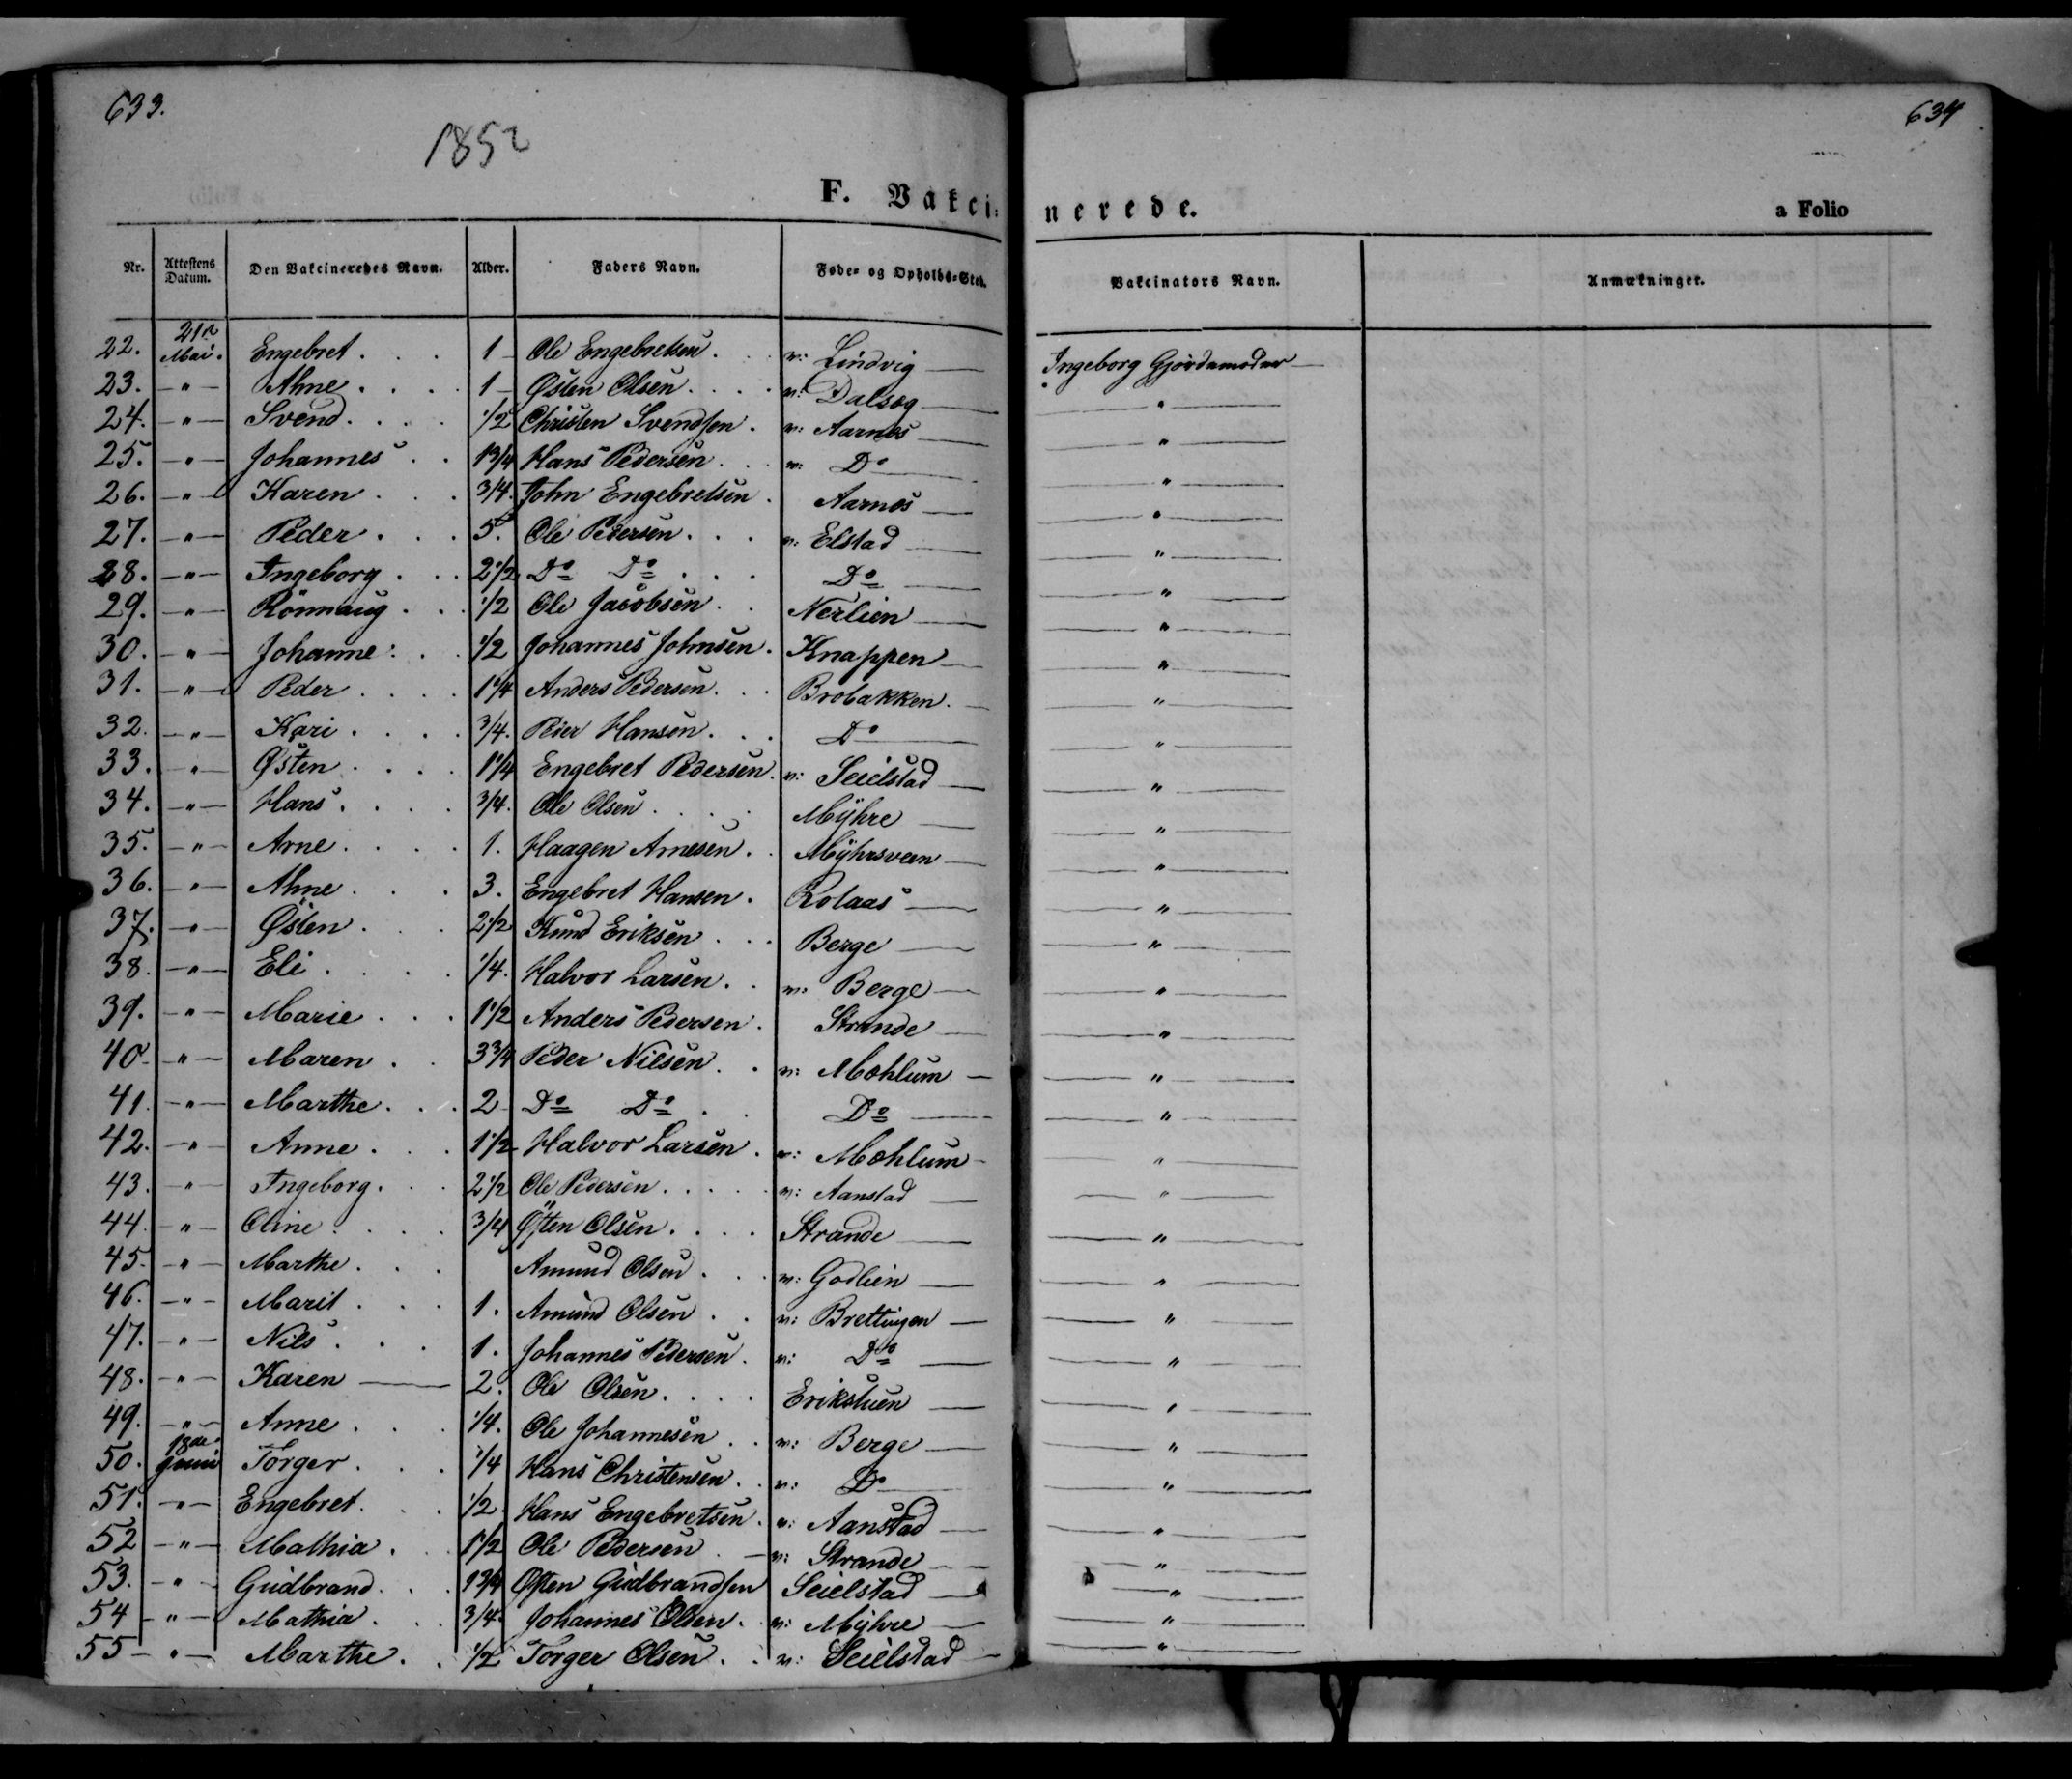 633.
634
1852
F. Vakcinerede.
a Folio
Nr. Attestens Datum. Den Vakcineredes Navn. Alder. Faders Navn. Føde- og Opholds-Sted. Vakcinators Navn. Anmærkninger.
22. 21de Mai. Engebret . . . 1 - Ole Engebretsen . . v: Lindvig — Ingeborg Gjordemoder —
23. -"- Ahne . . . . 1 - Østen Olsen . . . . v: Dalseg — — " —
24. -"- Svend . . . . 1/2 Christen Svendsen . v: Aarnes — — " —
25. -"- Johannes . . 1 3/4 Hans Pedersen . . . v: Do — — " —
26. -"- Karen . . . 3/4. John Engebretsen . Aarnes — — " —
27. -"- Peder . . . 5. Ole Pedersen . . . v: Elstad — — " —
28. -"- Ingeborg . . . 2 1/2 Do Do . . . Do — — " —
29. -"- Rönnaug . . . 1/2 Ole Jacobsen . . Nerlien — — " —
30. -"- Johanne . . . 1/2 Johannes Johnsen . Knappen — — " —
31. -"- Peder . . . . 1 1/4 Anders Pedersen . . . Brobakken. — — " —
32. -"- Kari . . . . 3/4. Peder Hansen . . . Do — — " —
33. -"- Østen . . . . 1 1/4 Engebret Pedersen . v: Seielstad — — " —
34. -"- Hans . . . . 3/4. Ole Olsen . . . . Mÿhre — — " —
35. -"- Arne . . . . 1. Haagen Arnesen . . Mÿhrsveen — — " —
36. -"- Ahne . . . 3. Engebret Hansen . Rolaas — — " —
37. -"- Østen . . . 2 1/2 Knud Eriksen . . . Berge — — " —
38. -"- Eli . . . . 1/4. Halvor Larsen . . v: Berge — — " —
39. -"- Marie . . . 1 1/2 Anders Pedersen . Strande — — " —
40. -"- Maren . . 3 3/4 Peder Nilsen . . v: Mæhlum — — " —
41. -"- Marthe . . . 2 - Do Do . . Do — — " —
42. -"- Anne . . . 1 1/2 Halvor Larsen . v: Mæhlum — — " —
43. -"- Ingeborg . . . 2 1/2 Ole Pedersen . . . . . v: Aanstad — — " —
44. -"- Oline . . . . 3/4 Østen Olsen . . . . Strande — — " —
45. -"- Marthe . . . Amund Olsen . . . v: Godlien — — " —
46. -"- Marit . . . 1. Amund Olsen . . v: Brettingen — — " —
47. -"- Nils . . . 1. Johannes Pedersen . v: Do — — " —
48. -"- Karen — 2. Ole Olsen . . . . Erikstuen — — " —
49. -"- Anne . . . 1/4. Ole Johannesen . . v: Berge — — " —
50. 18de Juni Torger . . . 1/4 Hans Christensen . . v: Do — — " —
51. -"- Engebret . . . 1/2. Hans Engebretsen . v: Aanstad — — " —
52 -"- Mathia . . . 1 1/2 Ole Pedersen . — v: Strande — — " —
53. -"- Gudbrand . . . 1 3/4 Østen Gudbrandsen Seielstad — — " —
54 -"- Mathia . . . 3/4. Johannes Olsen . v: Mÿhre — — " —
55 -"- Marthe . . 1/2 Torger Olsen . . v: Seielstad — — " —